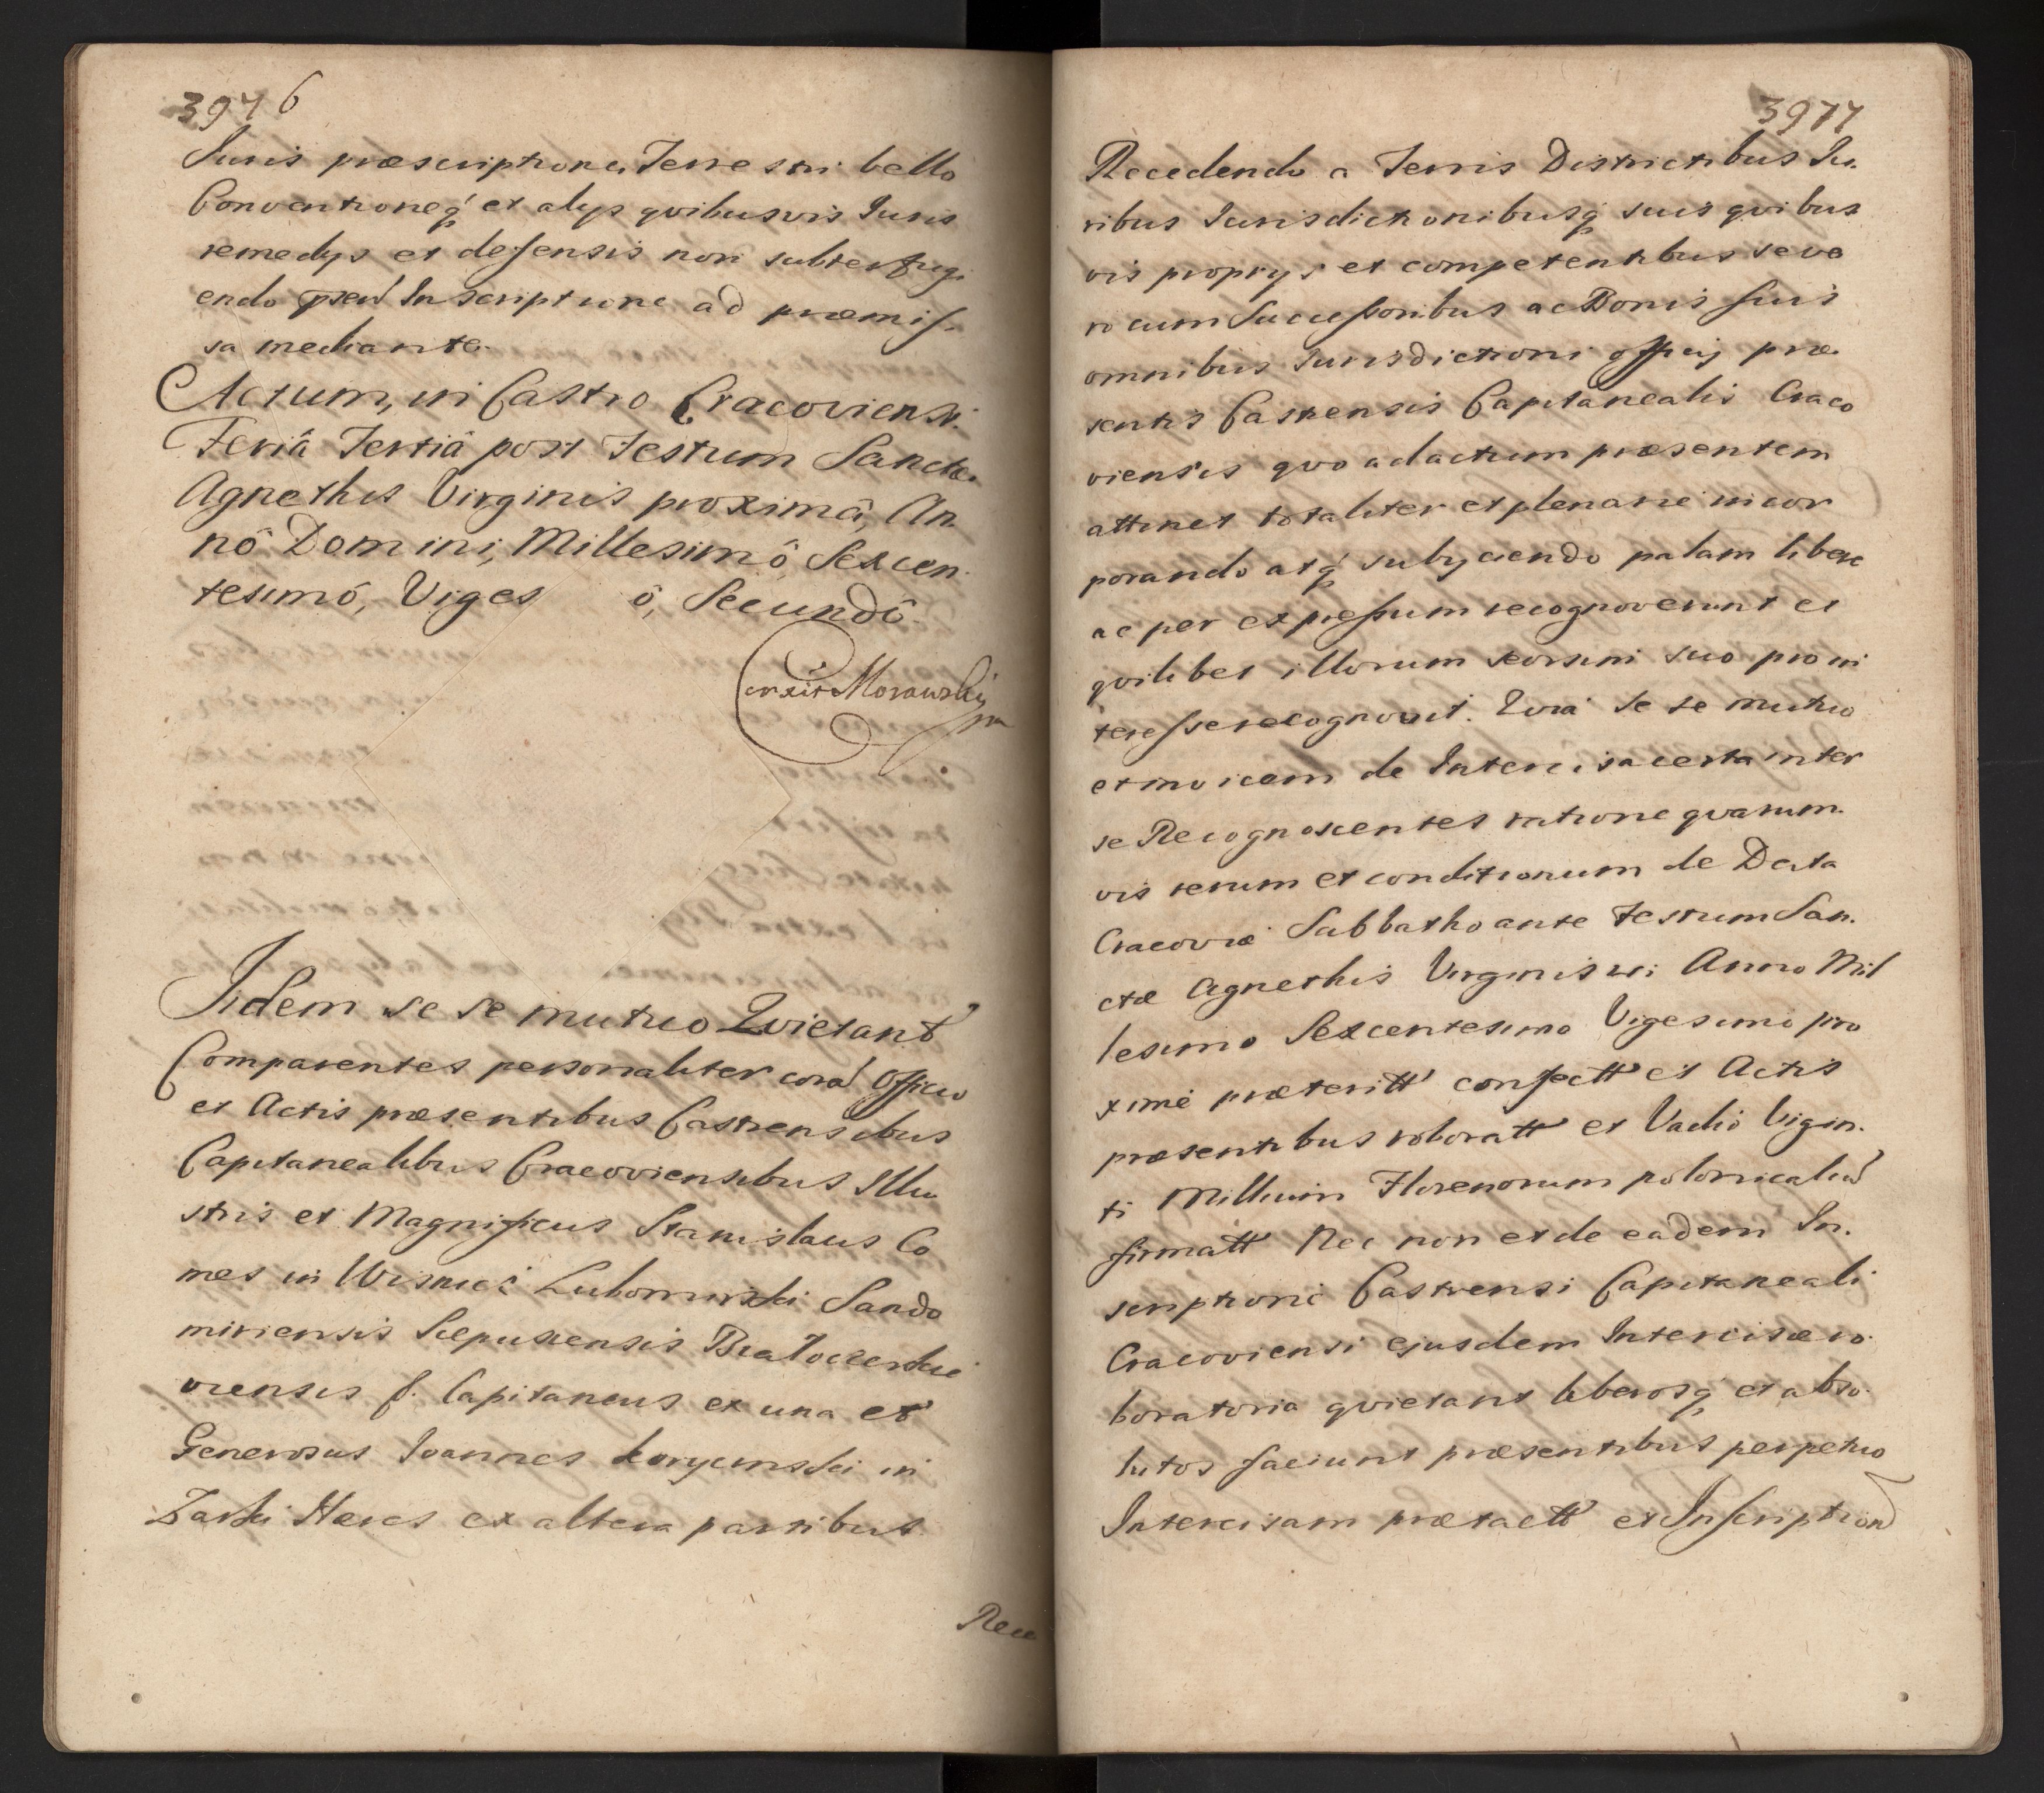 3976
Juris præscriptione, Terrestri bello
Conventioneq́ et alÿs qvibusvis Juris
remedÿs et defensis non subterfugi
endo p̄sen Inscriptione ad præmis-
sa mediante.
Actum, in Castro Cracoviensi.
Feriâ Tertiâ post Festum Sanctæ
Agnethis Virginis proximâ, An-
nô Domini, Millesimô, Sexcen-
tesimô, Viges ô, Secundô.
Correxit Morawski
mp
Iidem se se mutuo Qvietant
Comparentes personaliter corā Officio
et Actis præsentibus Castrensibus
Capitanealibus Cracoviensibus Illu
stris et Magnificus Stanislaus Co
mes in Wisnicz Lubomirski Sando
miriensis Scepusiensis
viensis f. Capitaneus ex una et
Generosus Joannes Korycinski in
Zarki Hæres ex altera partibus
Rece
3977
Recedendo a Terris Districtibus Ju-
ribus Jurisdictionibusq́ suis qvibus
vis proprÿs et competentibus seve
ro cum Successoribus ac Bonis suis
omnibus Jurisdictioni officij præ-
sentis Castrensis Capitanealis Craco
viensis qvo ad actum præsentem
attinet totaliter et plenarie incor
porando atq́ subÿciendo palam libere
ac per expressum recognoverunt et
qvilibet illorum seorsim suo pro in
teresse recognovit. Qvia se se mutuo
et invicem de Intercisa certa inter
se Recognoscentes ratione qvarum-
vis rerum et conditionum de Data
Cracoviæ Sabbatho ante Festum San-
ctæ Agnethis Virginis in Anno Mil
lesimo Sexcentesimo Vigesimo pro
xime præteritt confectt et Actis
præsentibus roboratt et Vadio Vigin-
ti Millium Florenorum polonicaliū
firmatt Nec non et de eadem In-
scriptione Castrensi Capitaneali
Cracoviensi ejusdem Intercisæ ro-
boratoria qvietant liberosq́ et abso-
lutos faciunt præsentibus perpetuo
Intercisam prætactt et Inscription̄